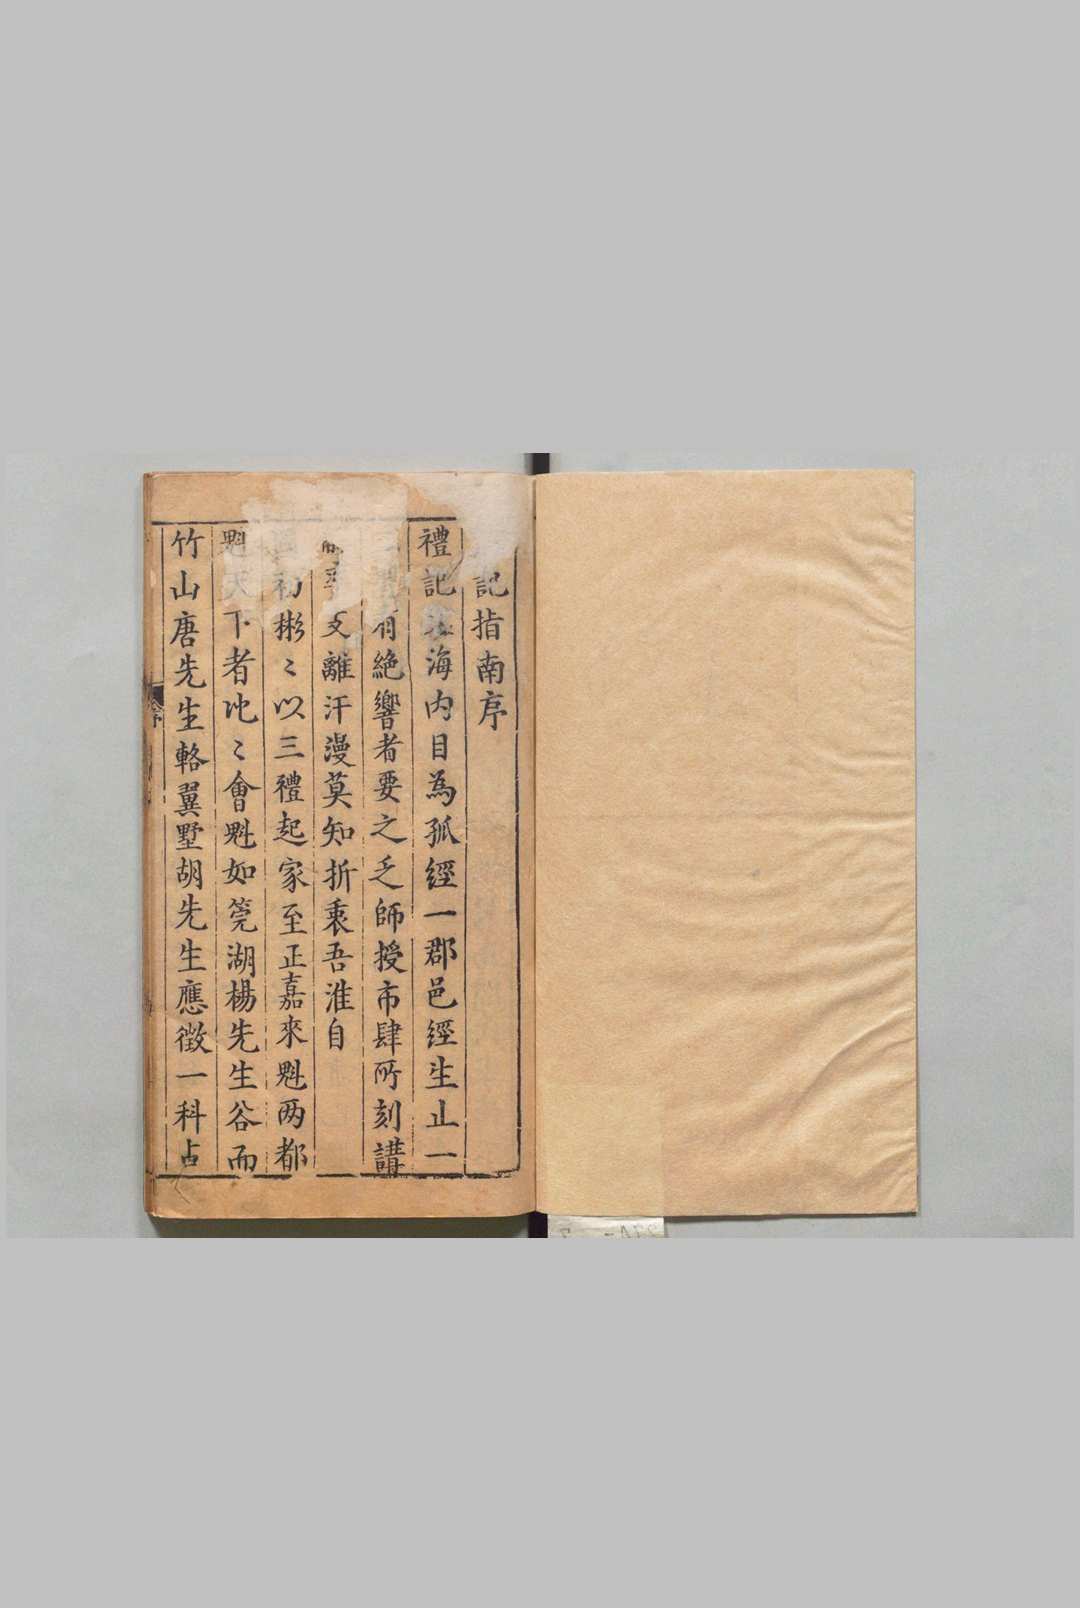 記指南序
禮記海內目為孤經一郡邑經生止一
有絕響者要之乏師授市肆所刻講
支離汗漫莫知折衷吾淮自
初彬〻以三禮起家至正嘉來魁两都
魁天下者比〻會魁如筦湖楊先生谷而
竹山唐先生輅翼墅胡先生應徵一科占
序